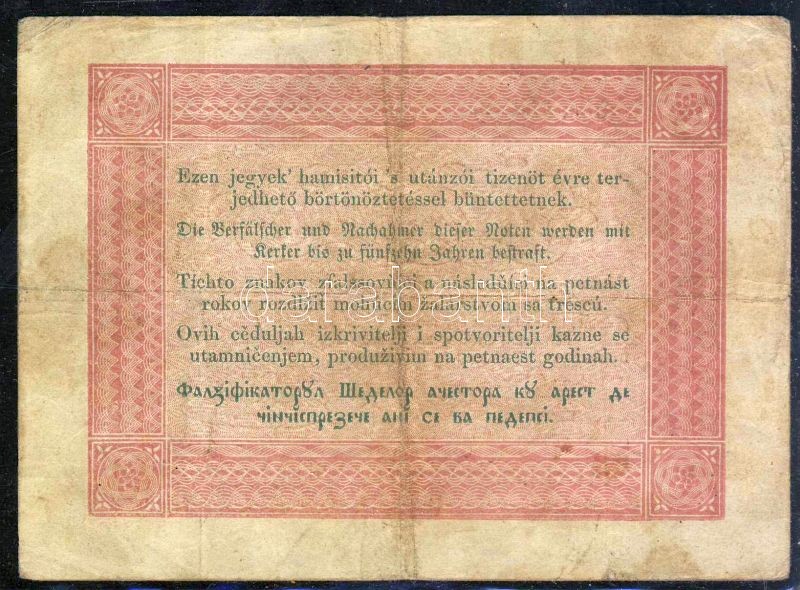 Ezen jegyek' hamisitói 's utánzói tizenöt évre ter-
jedhető börtönöztetéssel büntettetnek.
Die Verfälscher und Nachahmer dieser Noten werden mit
Kerker bis zu fünfzehn Jahren bestraft.
Tíchto znakov zfalzsoviťelí a násladuňíci na petnást
rokov rozdlžiť mohúcím žalárstvom sa trescú.
Ovih cěduljah izkrivitelji i spotvoritelji kazne se
utamničenjem, produživim na petnaest godinah.
Фалзіфікаторꙋл Шеделор ачестора кꙋ арест де
чінчіспрезече ані се ва педепсі.